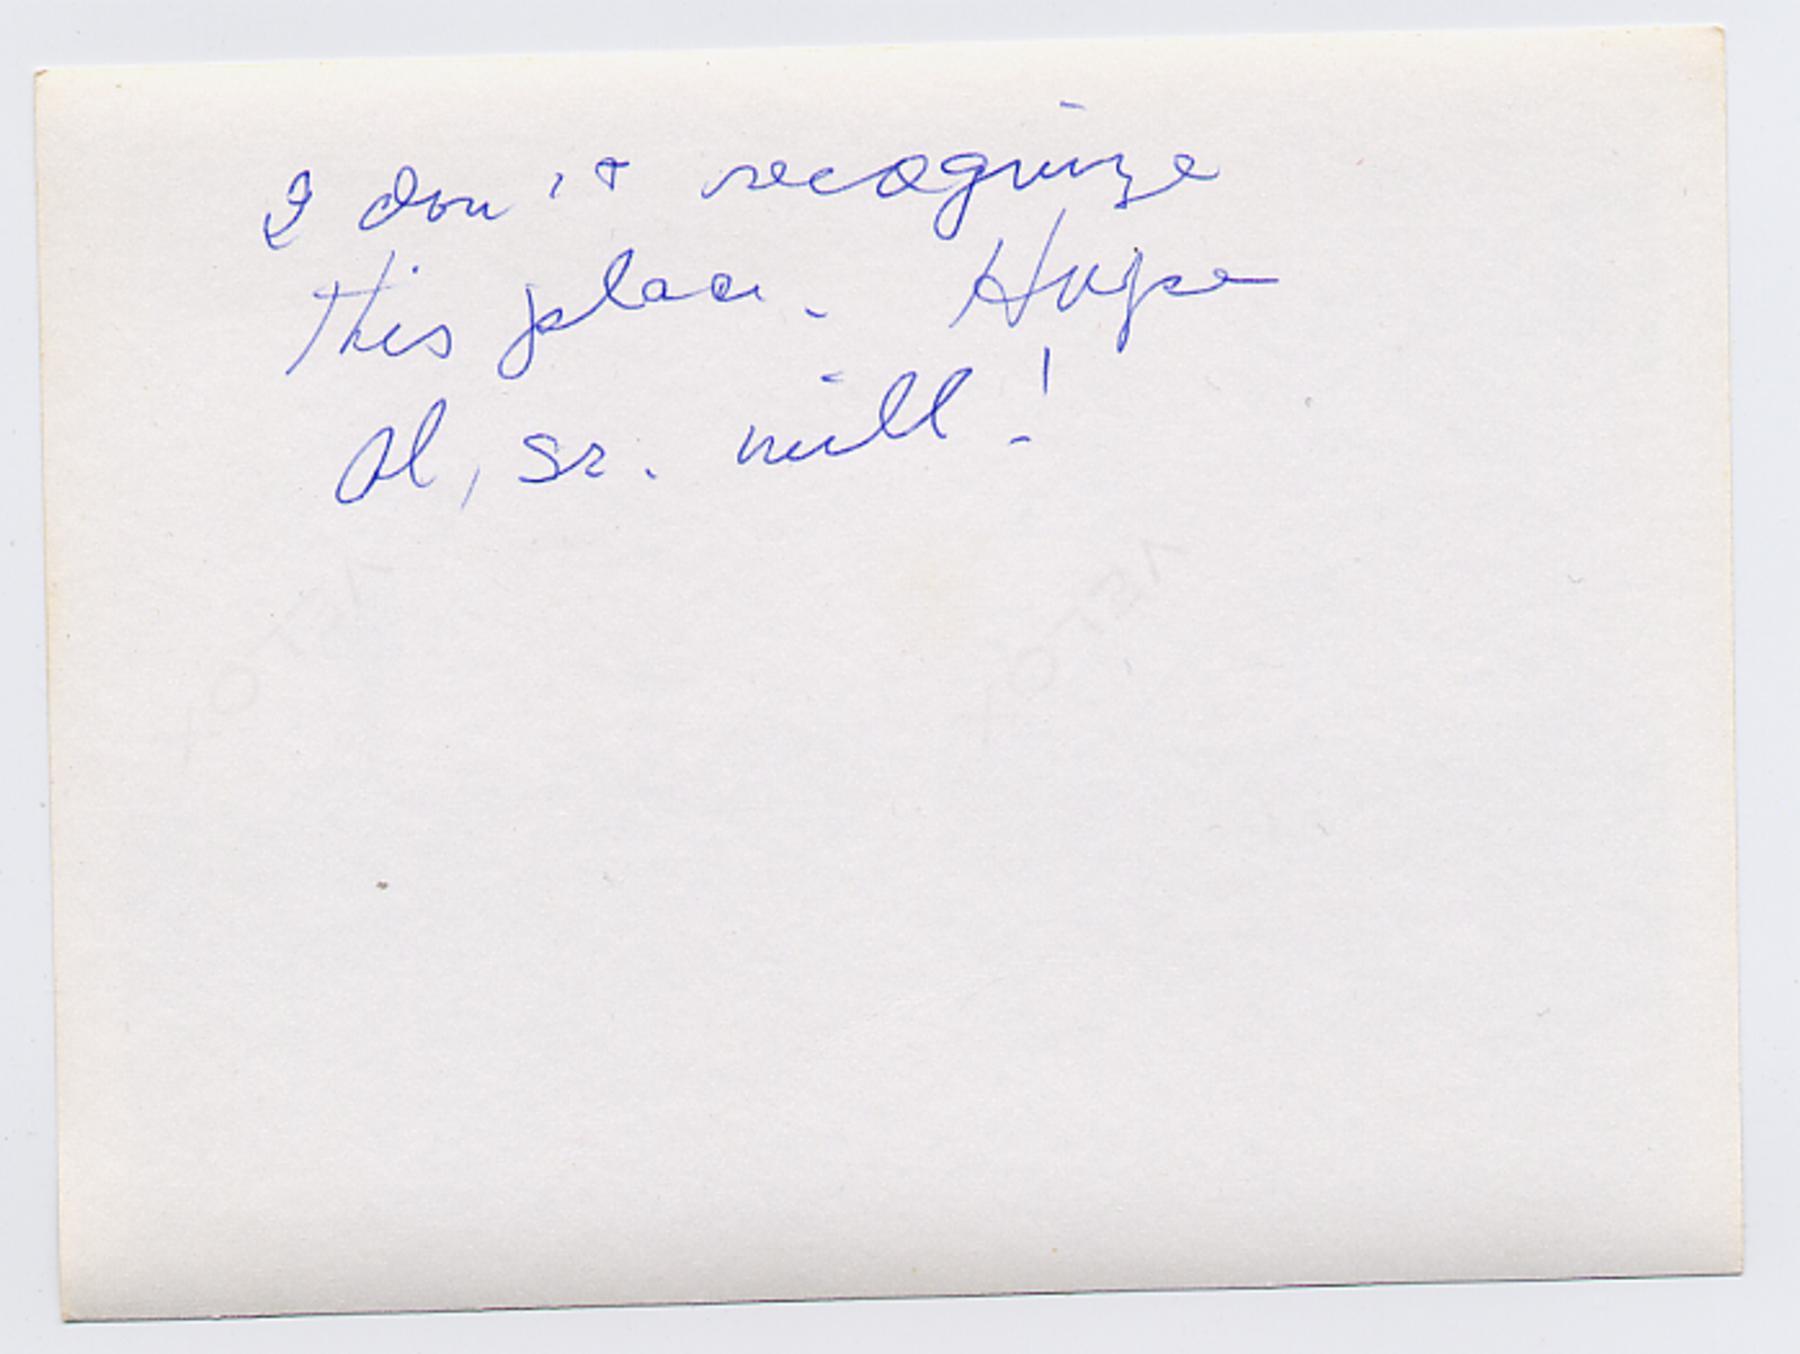 I don't recognize
this place. Hope
Al, Sr. will!